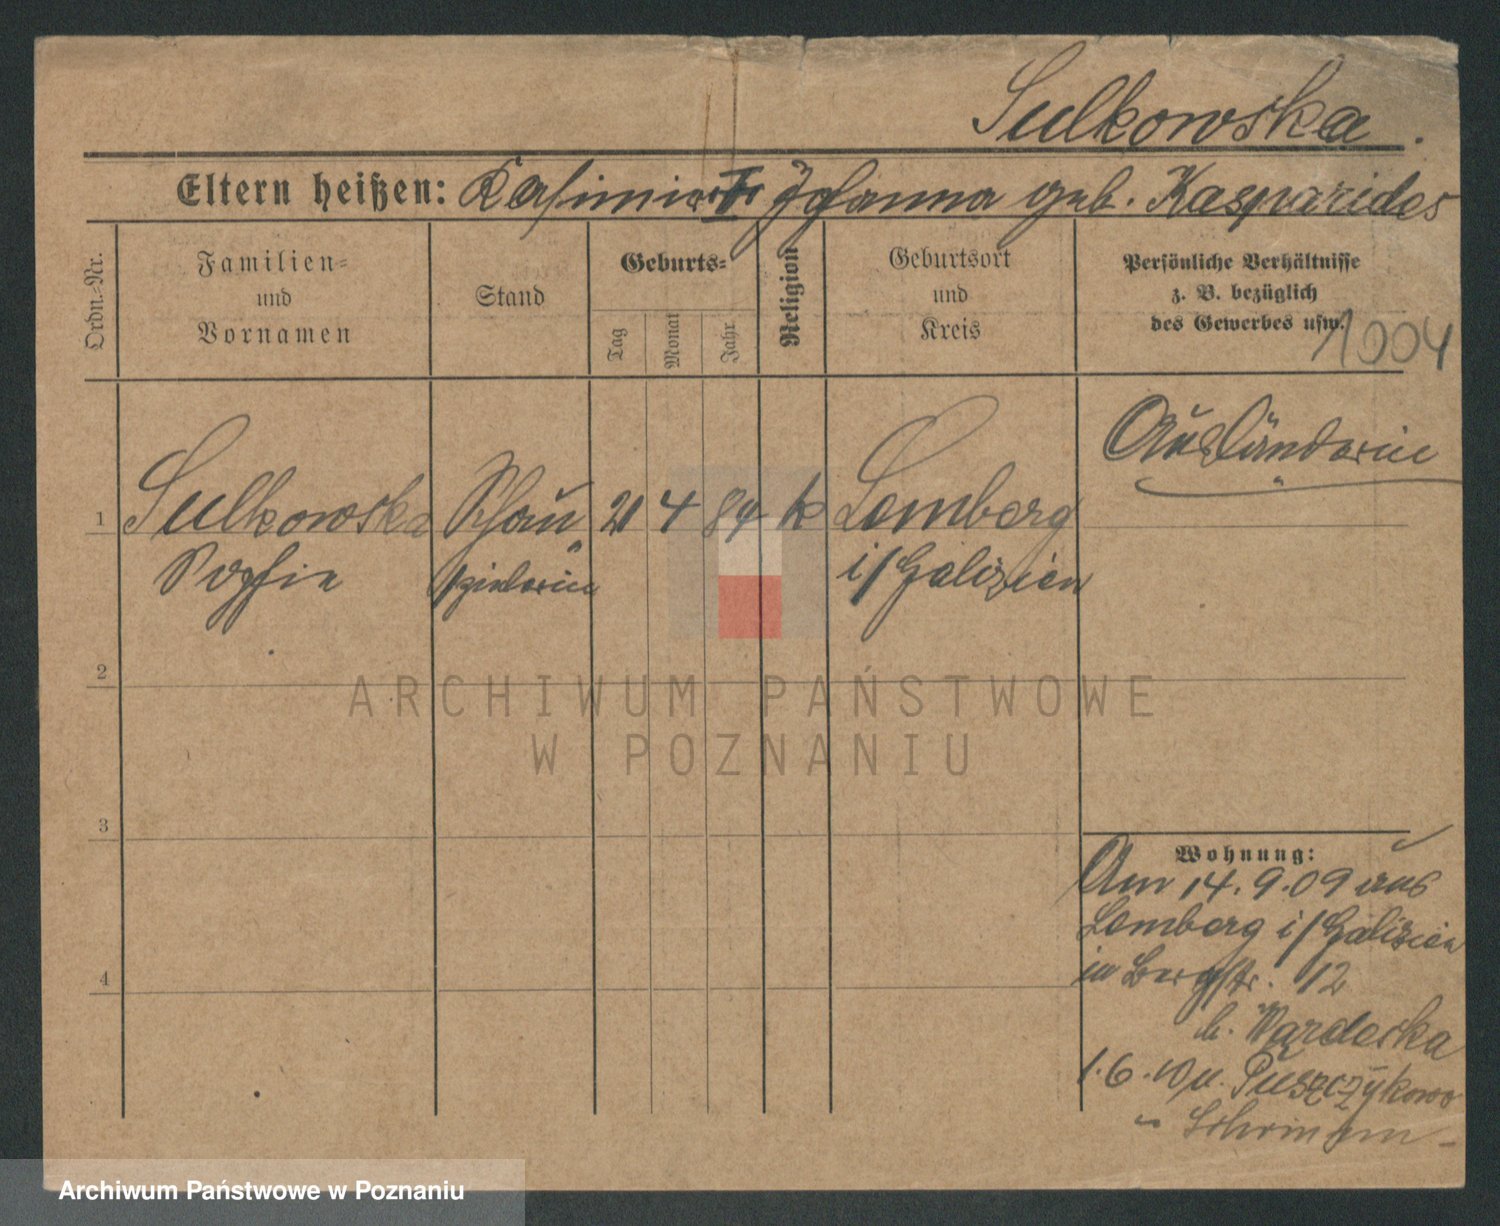 Sulkowska.
Eltern heißen: Kasimir u. Johanna geb. Kasparides
Ordn.-Nr.
Familien-
und
Vornamen
Stand
Geburts-
Tag
Monat
Jahr
Religion
Geburtsort
und
Kreis
Persönliche Verhältnisse
z. B. bezüglich
des Gewerbes usw.
1004
Ausländerin
1 Sulkowska Schau- 21 4 84 k Lemberg
Sophie spielerin i/Galizien
2
ARCHIWUM PAŃSTWOWE
W POZNANIU
3
4
Wohnung:
Am 14.9.09 aus
Lemberg i/Galizien
in Bergstr. 12
b. Wardeska
1.6.10 n. Puszczykowo
Archiwum Państwowe w Poznaniu